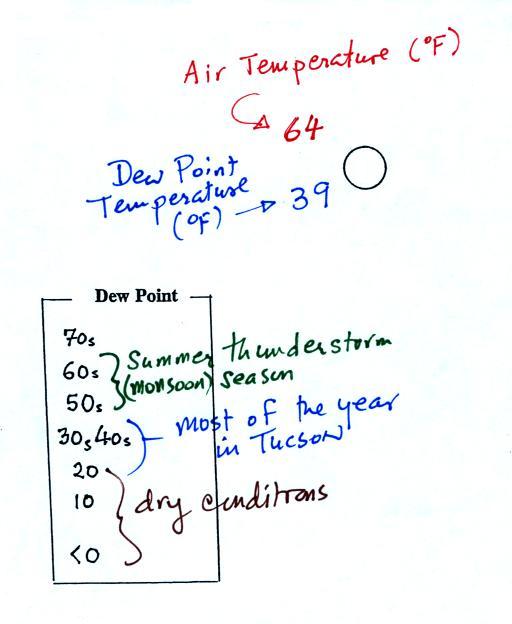 Air Temperature (°F)
64
Dew Point
Temperature
(°F)
39
Dew Point
70s
60s
50s
Summer thunderstorm
(monsoon) season
30s40s
most of the year
in Tucson
20
10
<0
dry conditions